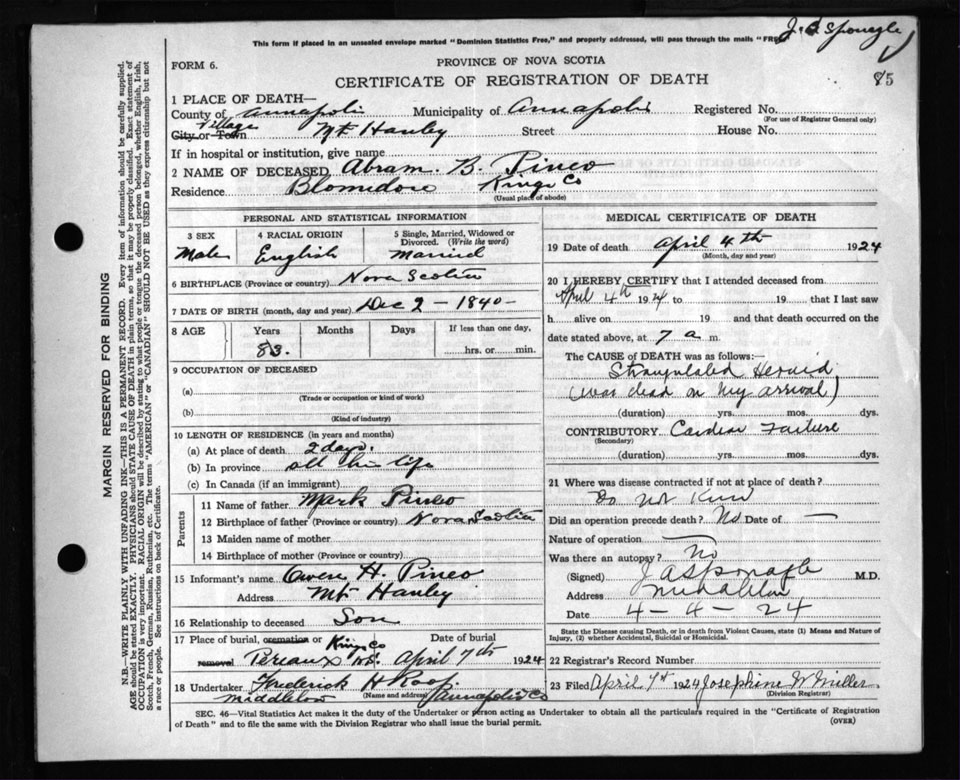 J. A. Sponagle
This form if placed in an unsealed envelope marked "Dominion Statistics Free," and properly addressed, will pass through the mails "FREE
PROVINCE OF NOVA SCOTIA
FORM 6.
CERTIFICATE OF REGISTRATION OF DEATH
85
1 PLACE OF DEATH—
County of Annapolis Municipality of Annapolis Registered No.
(For use of Registrar General only)
Village
City or Town Mt Hanley Street House No.
If in hospital or institution, give name
2 NAME OF DECEASED Abram. B. Pineo
Residence Blomidon Kings Co
(Usual place of abode)
PERSONAL AND STATISTICAL INFORMATION
3 SEX 4 RACIAL ORIGIN 5 Single, Married, Widowed or Divorced. (Write the word)
Male English Married
6 BIRTHPLACE (Province or country) Nova Scotia
7 DATE OF BIRTH (month, day and year) Dec 2 - 1840 -
8 AGE Years Months Days If less than one day,
83. hrs. or min.
9 OCCUPATION OF DECEASED
(a)
(Trade or occupation or kind of work)
(b)
(Kind of industry)
10 LENGTH OF RESIDENCE (in years and months)
(a) At place of death 2 days.
(b) In province all his life
(c) In Canada (if an immigrant)
Parents
11 Name of father Mark Pineo
12 Birthplace of father (Province or country) Nova Scotia
13 Maiden name of mother
14 Birthplace of mother (Province or country)
15 Informant's name Owen H. Pineo
Address Mt Hanley
16 Relationship to deceased Son
17 Place of burial, cremation or Kings Co Date of burial
removal Pereaux N.S. April 7th 1924
18 Undertaker Frederick H Roop
Middleton (Name and address) Annapolis Co
MEDICAL CERTIFICATE OF DEATH
19 Date of death April 4th 1924
(Month, day and year)
20 I HEREBY CERTIFY that I attended deceased from
April 4th 1924 to 19 that I last saw
h alive on 19 and that death occurred on the
date stated above, at 7 a m.
The CAUSE of DEATH was as follows:—
Strangulated Hernia
(was dead on my arrival)
(duration) yrs. mos. dys.
CONTRIBUTORY Cardiac Failure
(Secondary)
(duration) yrs. mos. dys.
21 Where was disease contracted if not at place of death?
Do not Know
Did an operation precede death? No Date of —
Nature of operation —
Was there an autopsy? No
(Signed) J A Sponagle M.D.
Address Middleton
Date 4 - 4 - 24
State the Disease causing Death, or in death from Violent Causes, state (1) Means and Nature of
Injury, (2) whether Accidental, Suicidal or Homicidal.
22 Registrar's Record Number
23 Filed April 7th 1924 Josephine W Miller
(Division Registrar)
SEC. 46—Vital Statistics Act makes it the duty of the Undertaker or person acting as Undertaker to obtain all the particulars required in the "Certificate of Registration
of Death" and to file the same with the Division Registrar who shall issue the burial permit.
(OVER)
MARGIN RESERVED FOR BINDING
N.B.—WRITE PLAINLY WITH UNFADING INK—THIS IS A PERMANENT RECORD. Every item of information should be carefully supplied.
AGE should be stated EXACTLY. PHYSICIANS should STATE CAUSE OF DEATH in plain terms, so that it may be properly classified. Exact statement of
OCCUPATION is very important. RACIAL ORIGIN will be described by stating to what people or tongue the deceased person belonged, whether English, Irish,
Scotch, French, German, Russian, Ruthenian, etc. The terms "AMERICAN" or "CANADIAN" SHOULD NOT BE USED as they express citizenship but not
a race or people. See instructions on back of Certificate.